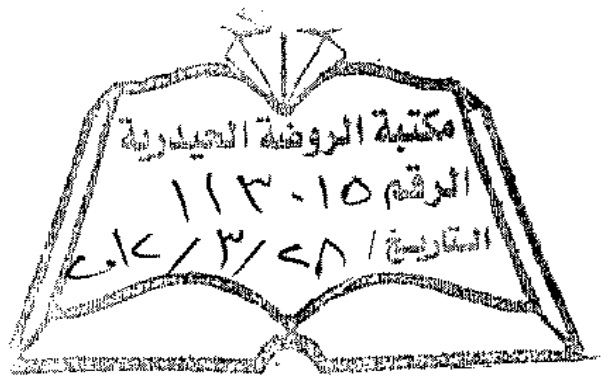 مكتبة الروضة الحيدرية
الرقم ١١٣٠١٥
التاريخ / ٢٨ / ٣ / ٢٠١٢